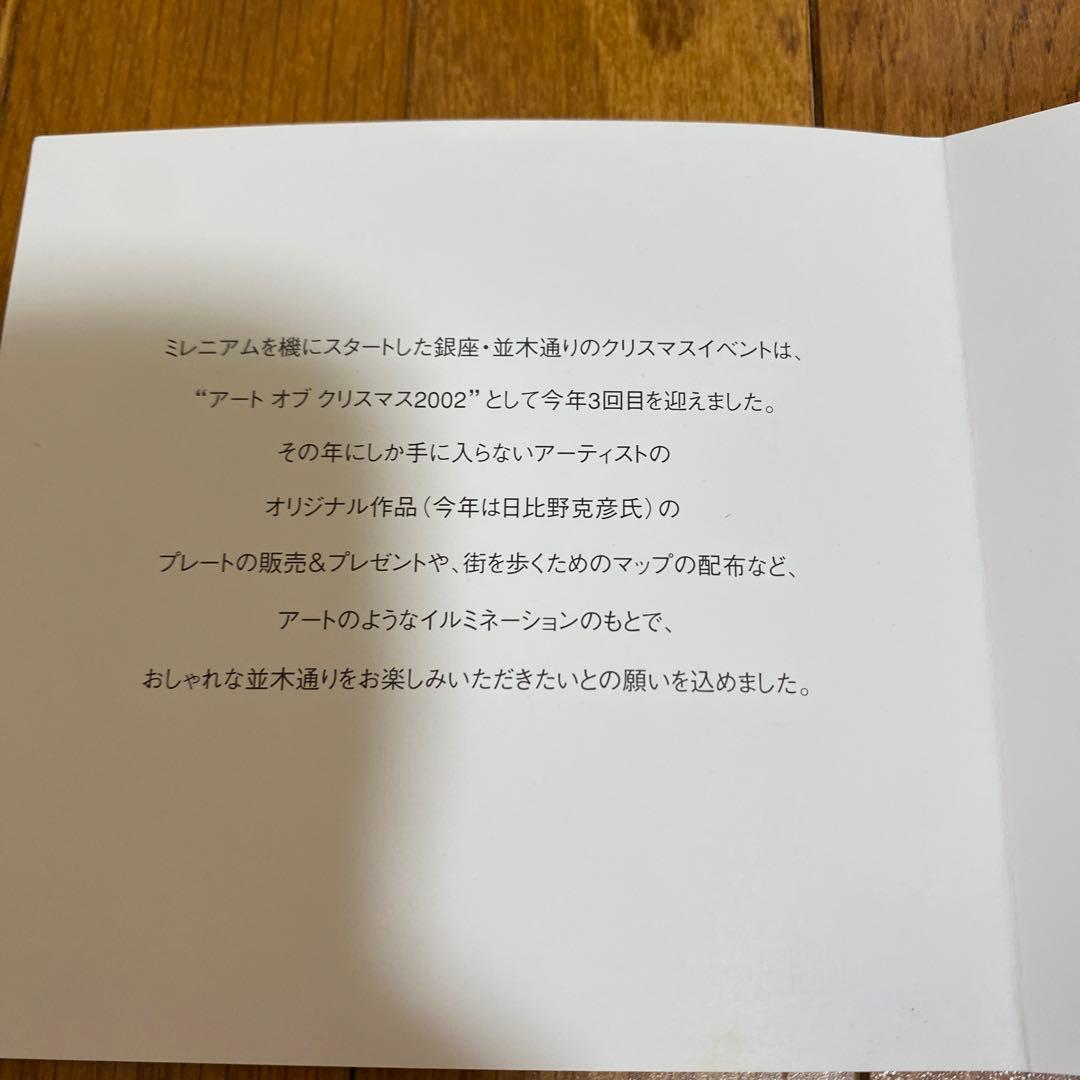 ミレニアムを機にスタートした銀座・並木通りのクリスマスイベントは、
“アート オブ クリスマス2002”として今年3回目を迎えました。
その年にしか手に入らないアーティストの
オリジナル作品(今年は日比野克彦氏)の
プレートの販売&プレゼントや、街を歩くためのマップの配布など、
アートのようなイルミネーションのもとで、
おしゃれな並木通りをお楽しみいただきたいとの願いを込めました。